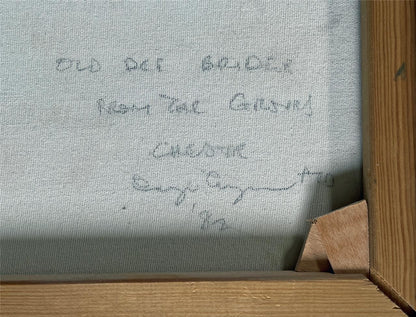 OLD DEE BRIDGE
FROM THE GROVES
CHESTER
'82